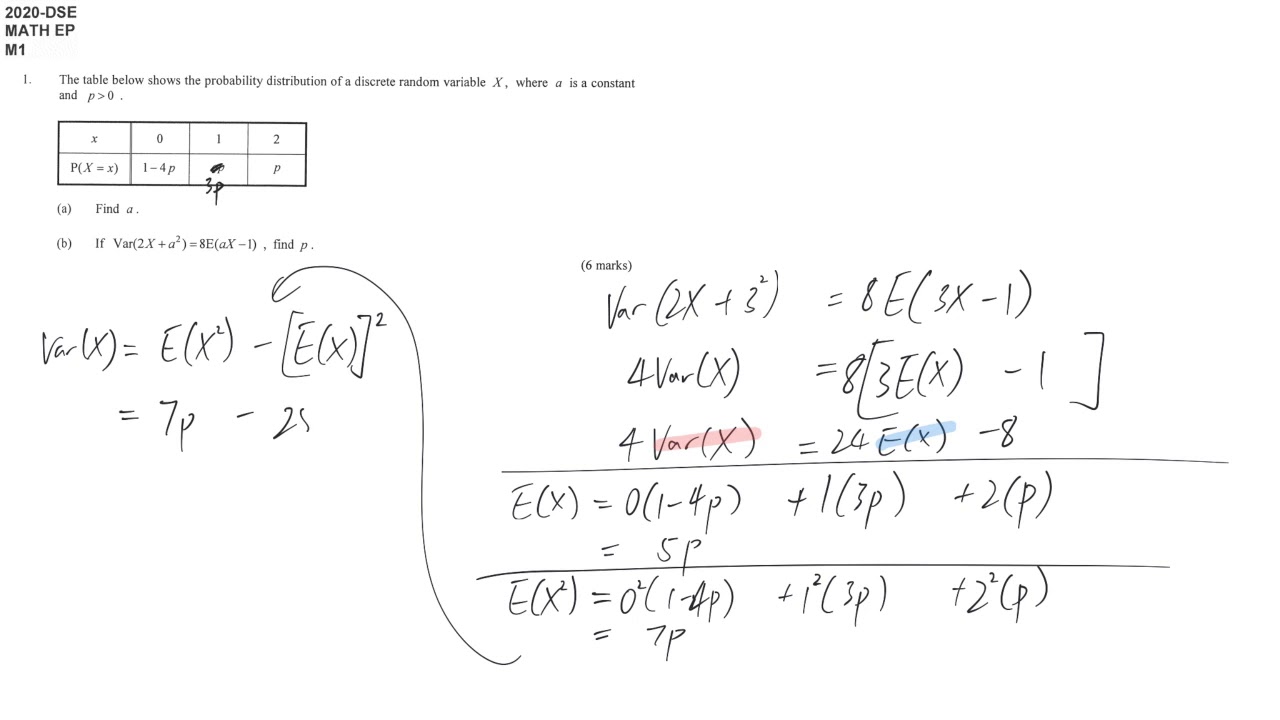 2020-DSE
MATH EP
M1
1. The table below shows the probability distribution of a discrete random variable X, where a is a constant
and p > 0 .
x 0 1 2
P(X = x) 1 − 4p p
3p
(a) Find a .
(b) If Var(2X + a²) = 8E(aX − 1) , find p .
(6 marks)
Var(X) = E(X²) − [E(X)]²
= 7p − 25
Var(2X + 3²) = 8E(3X − 1)
4Var(X) = 8[3E(X) − 1]
4Var(X) = 24E(X) − 8
E(X) = 0(1−4p) + 1(3p) + 2(p)
= 5p
E(X²) = 0²(1−4p) + 1²(3p) + 2²(p)
= 7p